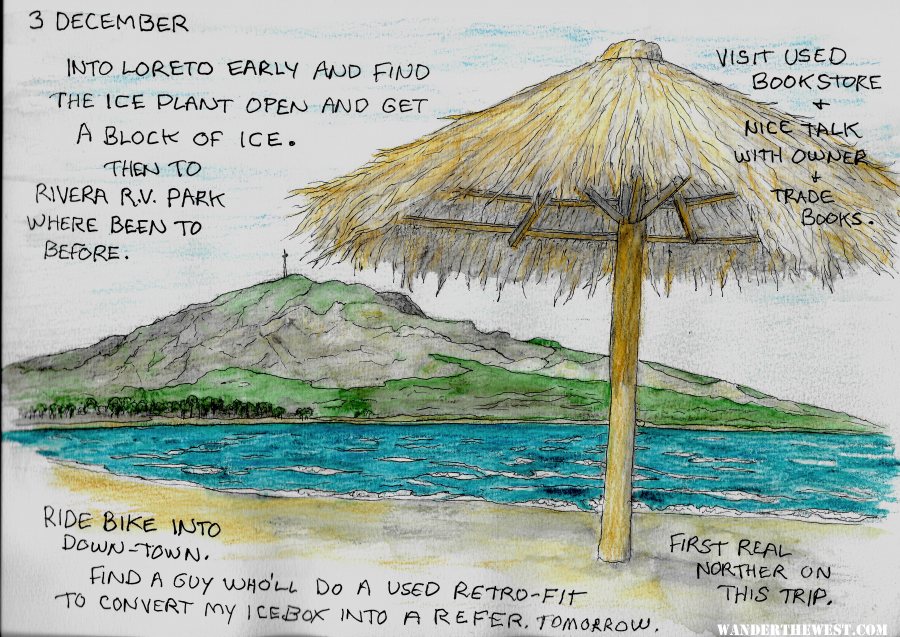 3 DECEMBER
INTO LORETO EARLY AND FIND
THE ICE PLANT OPEN AND GET
A BLOCK OF ICE.
THEN TO
RIVERA R.V. PARK
WHERE BEEN TO
BEFORE.
VISIT USED
BOOKSTORE
+
NICE TALK
WITH OWNER
+
TRADE
BOOKS.
RIDE BIKE INTO
DOWN-TOWN.
FIND A GUY WHO'LL DO A USED RETRO-FIT
TO CONVERT MY ICEBOX INTO A REFER. TOMORROW.
FIRST REAL
NORTHER ON
THIS TRIP.
WANDERTHEWEST.COM